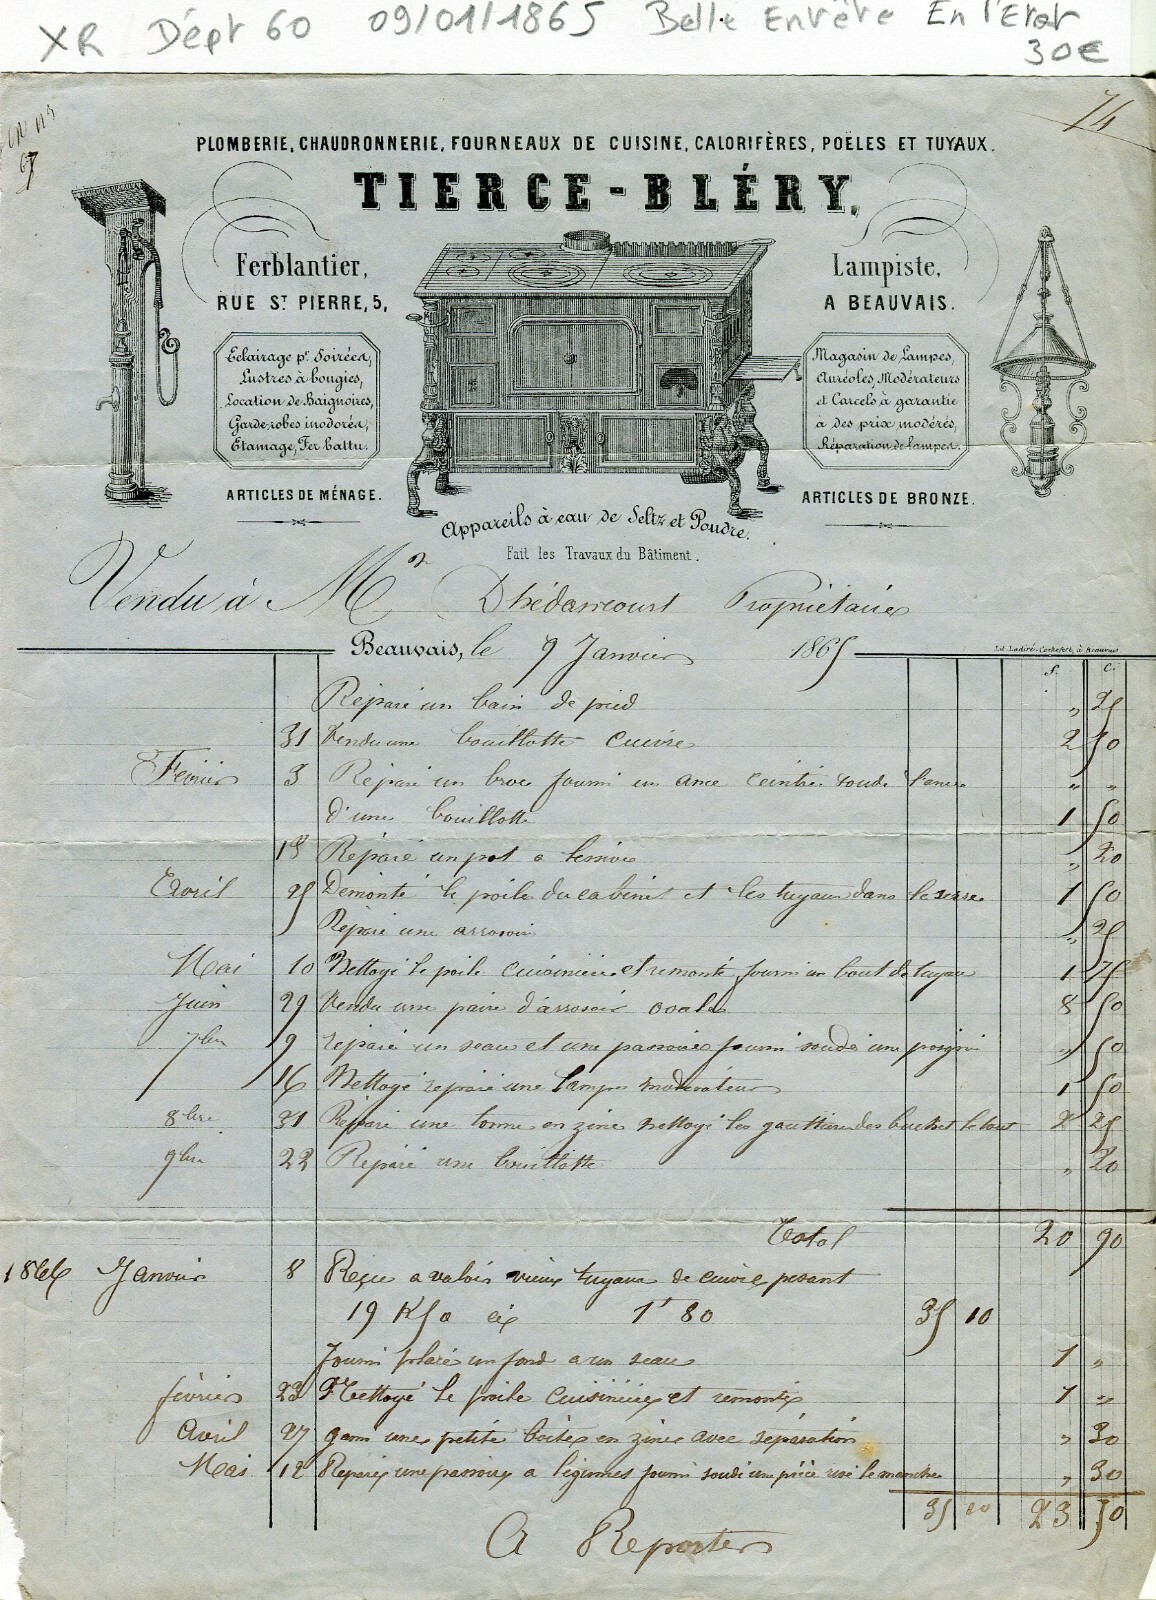 XR Dépt 60 09/01/1865 Belle Entête En l'Etat
30€
74
PLOMBERIE, CHAUDRONNERIE, FOURNEAUX DE CUISINE, CALORIFÈRES, POËLES ET TUYAUX.
TIERCE-BLÉRY,
Ferblantier,
RUE ST PIERRE, 5,
Lampiste,
A BEAUVAIS.
Eclairage pr Soirées,
Lustres à bougies,
Location de Baignoires,
Garde-robes inodores,
Etamage, Fer battu.
ARTICLES DE MÉNAGE.
Magasin de Lampes,
Auréoles, Modérateurs
et Carcels à garantie
à des prix modérés,
Réparation de lampes.
ARTICLES DE BRONZE.
Appareils à eau de Seltz et Poudre.
Fait les Travaux du Bâtiment.
Vendu à Mr Dhédancourt Propriétaire
Beauvais, le 9 Janvier 1865
Lit. Ladiré-Cochefert, à Beauvais
f. c.
Réparé un bain de pied " 25
31 Vendu une bouillotte cuivre 2 50
Février 3 Réparé un broc fourni un ance ceintré soudé l'ance " "
d'une bouillotte 1 50
Réparé un pot a " 20
Avril 25 Démonté le poile du cabinet et les tuyaux dans la serre 1 50
Réparé une arrosoir " 25
Mai 10 Nettoyé le poile cuisinière et remonté fourni un bout de tuyau 1 75
Juin 29 Vendu une paire d'arrosoir ovale 8 50
7bre 9 réparé un seau et une passoire fourni soudé une poigné " 50
16 Nettoyé réparé une lampe modérateur 1 50
8bre 31 Réparé une tonne en zinc nettoyé les gouttières des le tout 2 25
9bre 22 Réparé une bouillotte " 20
Total 20 90
1866 Janvier 8 Reçu a valoir vieux tuyaux de cuivre pesant
19 K 50 à 1f 80 35 10
Fourni placé un fond a un seau 1 "
février 23 Nettoyé le poile cuisinière et remonté 1 "
Avril 27 garni une petite boite en zinc avec séparation " 30
Mai 12 Réparé une passoire a légumes fourni soudé un pièce rivé le manche " 30
35 10 23 50
A Reporter